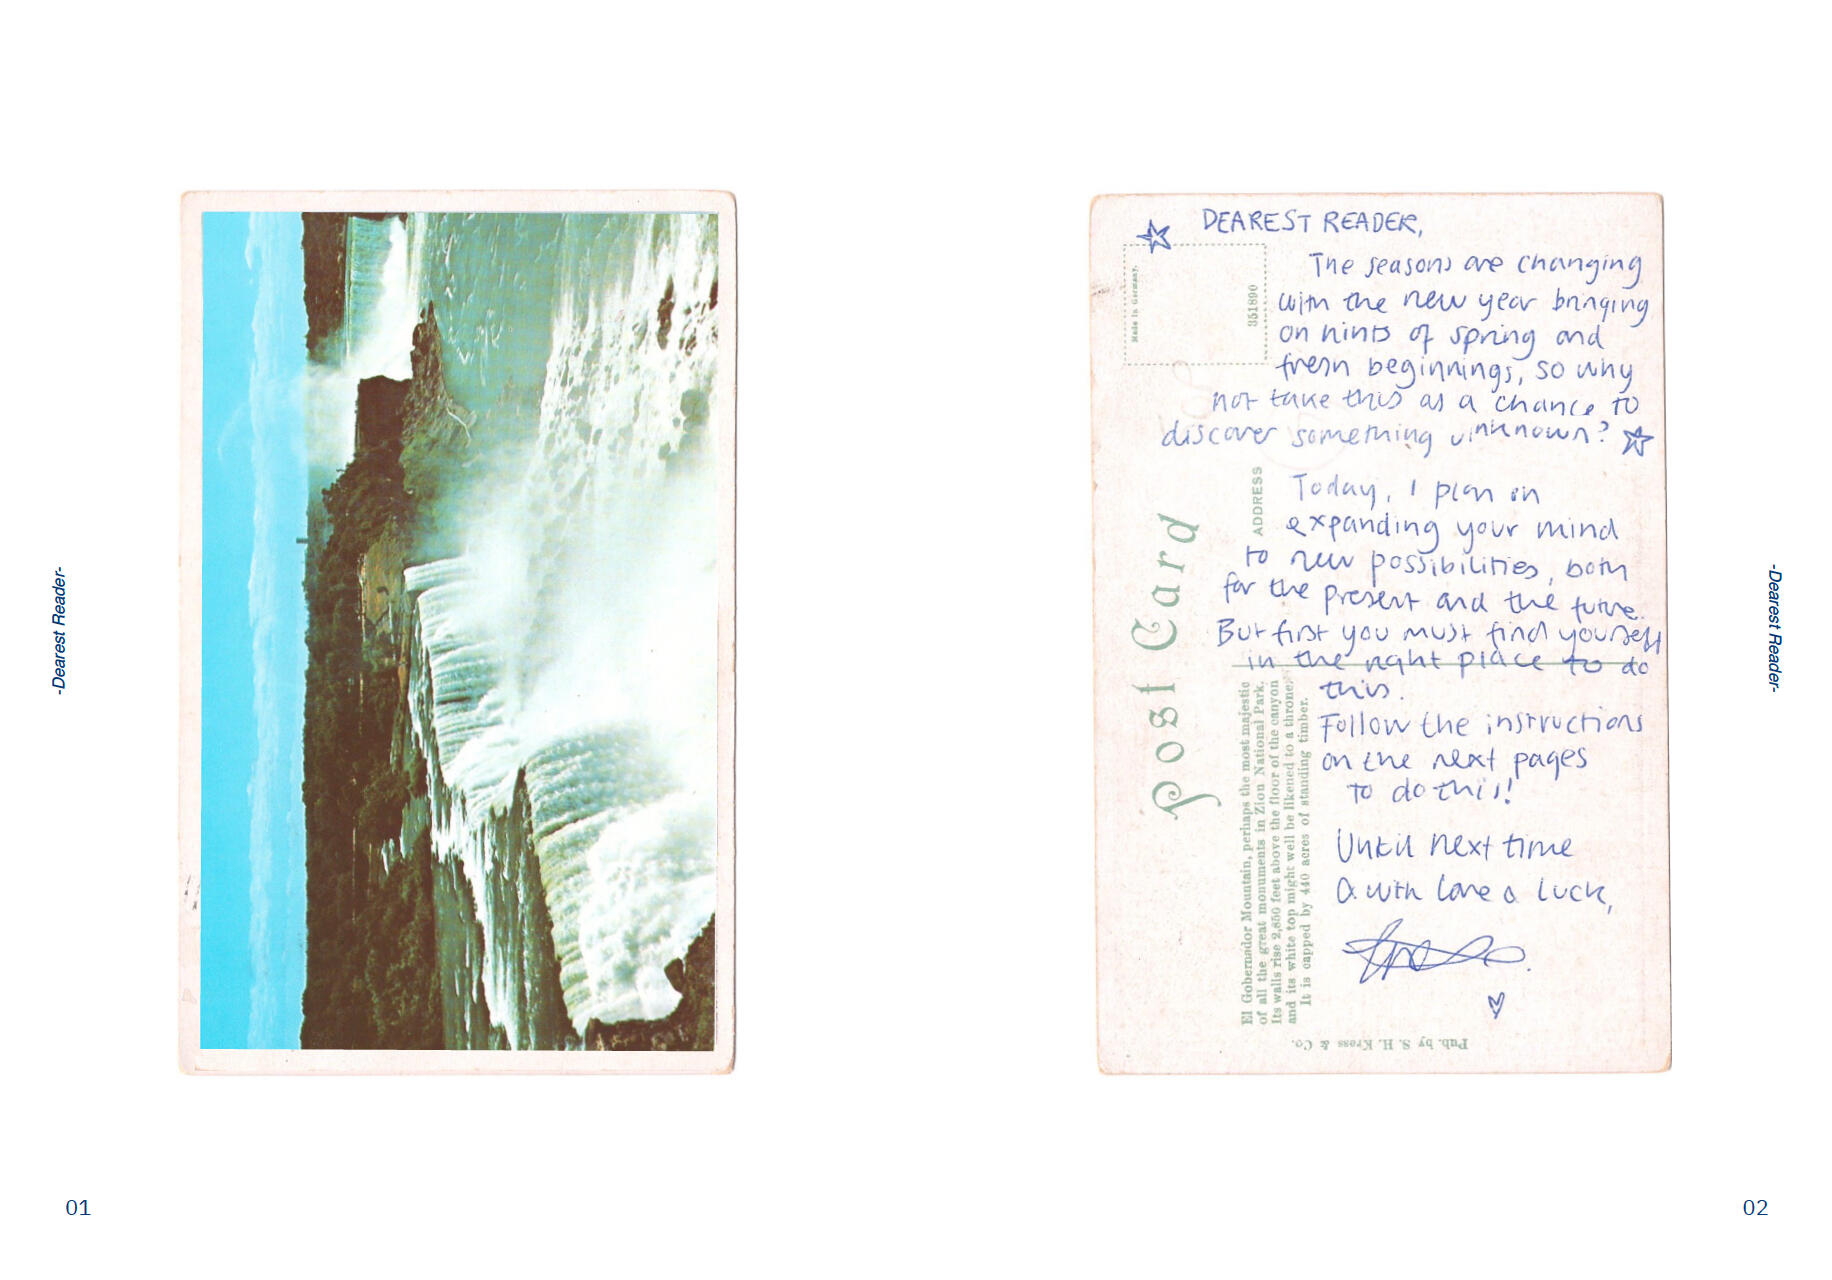 -Dearest Reader-
01
DEAREST READER,
The seasons are changing
with the new year bringing
on hints of spring and
fresh beginnings, so why
not take this as a chance to
discover something unknown?
Today, I plan on
expanding your mind
to new possibilities, both
for the present and the future.
But first you must find yourself
in the right place to do
this.
Follow the instructions
on the next pages
to do this!
Until next time
& with love & luck,
Made in Germany.
351890
Post Card
ADDRESS
El Gobernador Mountain, perhaps the most majestic
of all the great monuments in Zion National Park.
Its walls rise 2,850 feet above the floor of the canyon
and its white top might well be likened to a throne.
It is capped by 440 acres of standing timber.
Pub. by S. H. Kress & Co.
-Dearest Reader-
02